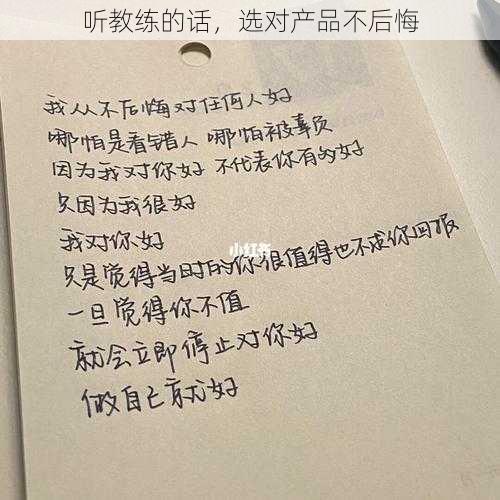 听教练的话，选对产品不后悔
我从不后悔对任何人好
哪怕是看错人 哪怕被辜负
因为我对你好 不代表你有多好
只因为我很好
我对你好
小红书
只是觉得当时的你很值得也不求你回报
一旦觉得你不值
就会立即停止对你好
做自己就好